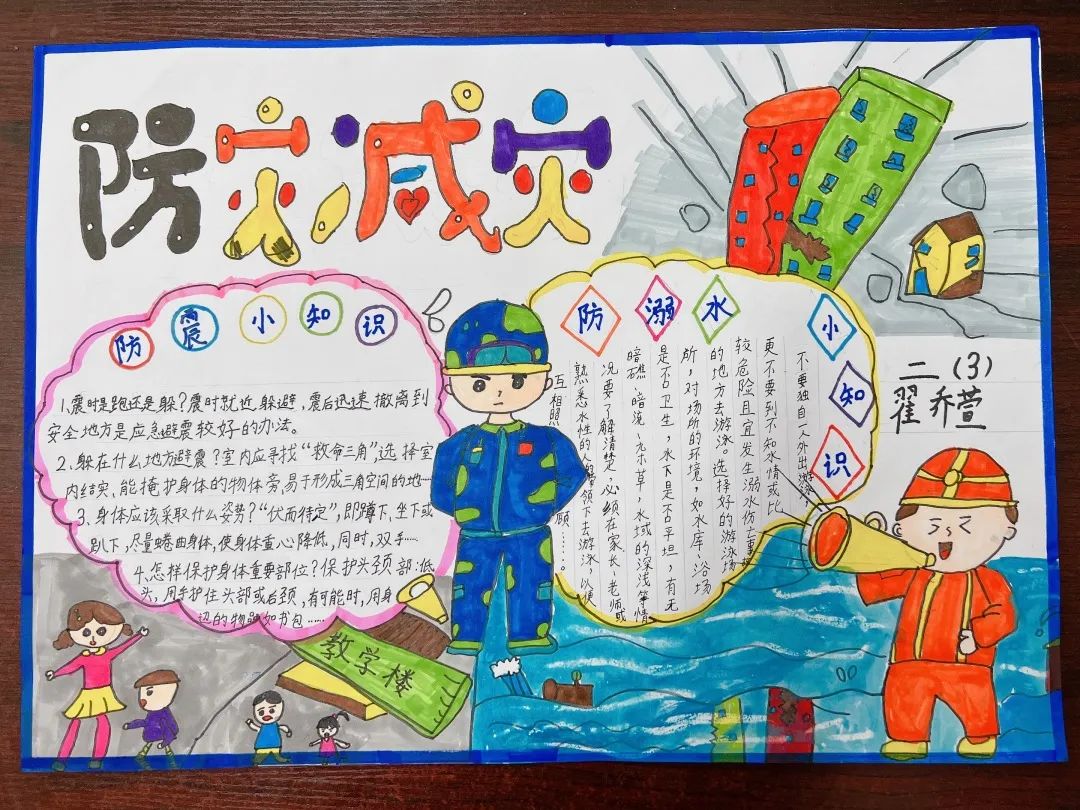 防灾减灾
防震小知识
1、震时是跑还是躲?震时就近躲避,震后迅速撤离到
安全地方是应急避震较好的办法。
2、躲在什么地方避震?室内应寻找“救命三角”,选择室
内结实、能掩护身体的物体旁,易于形成三角空间的地……
3、身体应该采取什么姿势?“伏而待定”,即蹲下、坐下或
趴下,尽量蜷曲身体,使身体重心降低,同时,双手……
4、怎样保护身体重要部位?保护头颈部:低
头,用手护住头部或后颈,有可能时,用身
边的物如书包……
防溺水小知识
不要独自一人外出游泳,
更不要到不知水情或比
较危险且宜发生溺水伤亡事故
的地方去游泳。选择好的游泳场
所,对场所的环境,如水库、浴场
是不卫生,水下是不是平坦,有无
暗礁、暗流、杂草,水域的深浅等情
况要了解清楚,必须在家长、老师或
熟悉水性的人带领下去游泳,以便
互相照顾……。
二(3)
翟乔萱
教学楼